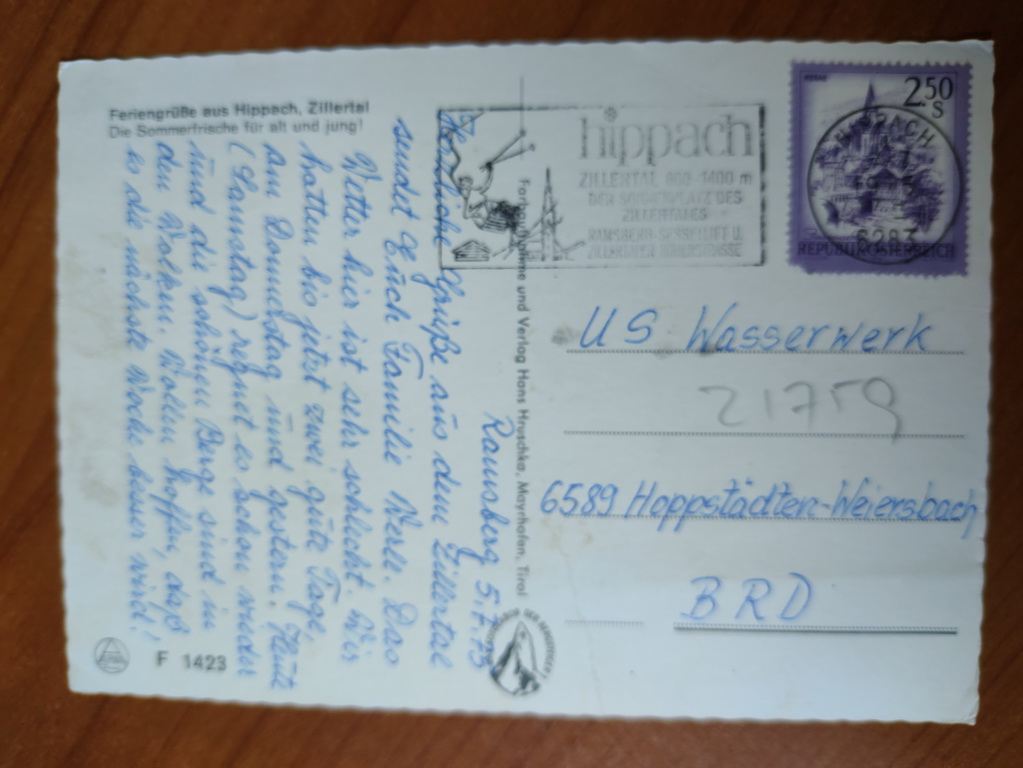 Feriengrüße aus Hippach, Zillertal
Die Sommerfrische für alt und jung!
Ramsberg 5.7.75
Herzliche Grüße aus dem Zillertal
sendet Euch Familie Werle. Das
Wetter hier ist sehr schlecht. Wir
hatten bis jetzt zwei gute Tage,
am Donnerstag und gestern. Heute
(Samstag) regnet es schon wieder
und die schönen Berge sind in
den Wolken. Wollen hoffen, daß
es die nächste Woche besser wird!
F 1423
Farbaufnahme und Verlag Hans Hruschka, Mayrhofen, Tirol
hippach
ZILLERTAL 600-1400 m
DER SONNENPLATZ DES
ZILLERTALES
RAMSBERG-SESSELLIFT U.
ZILLERTALER HÖHENSTRASSE
2.50
S
HIPPACH
6283
REPUBLIK ÖSTERREICH
US Wasserwerk
21759
6589 Hoppstädten-Weiersbach
BRD